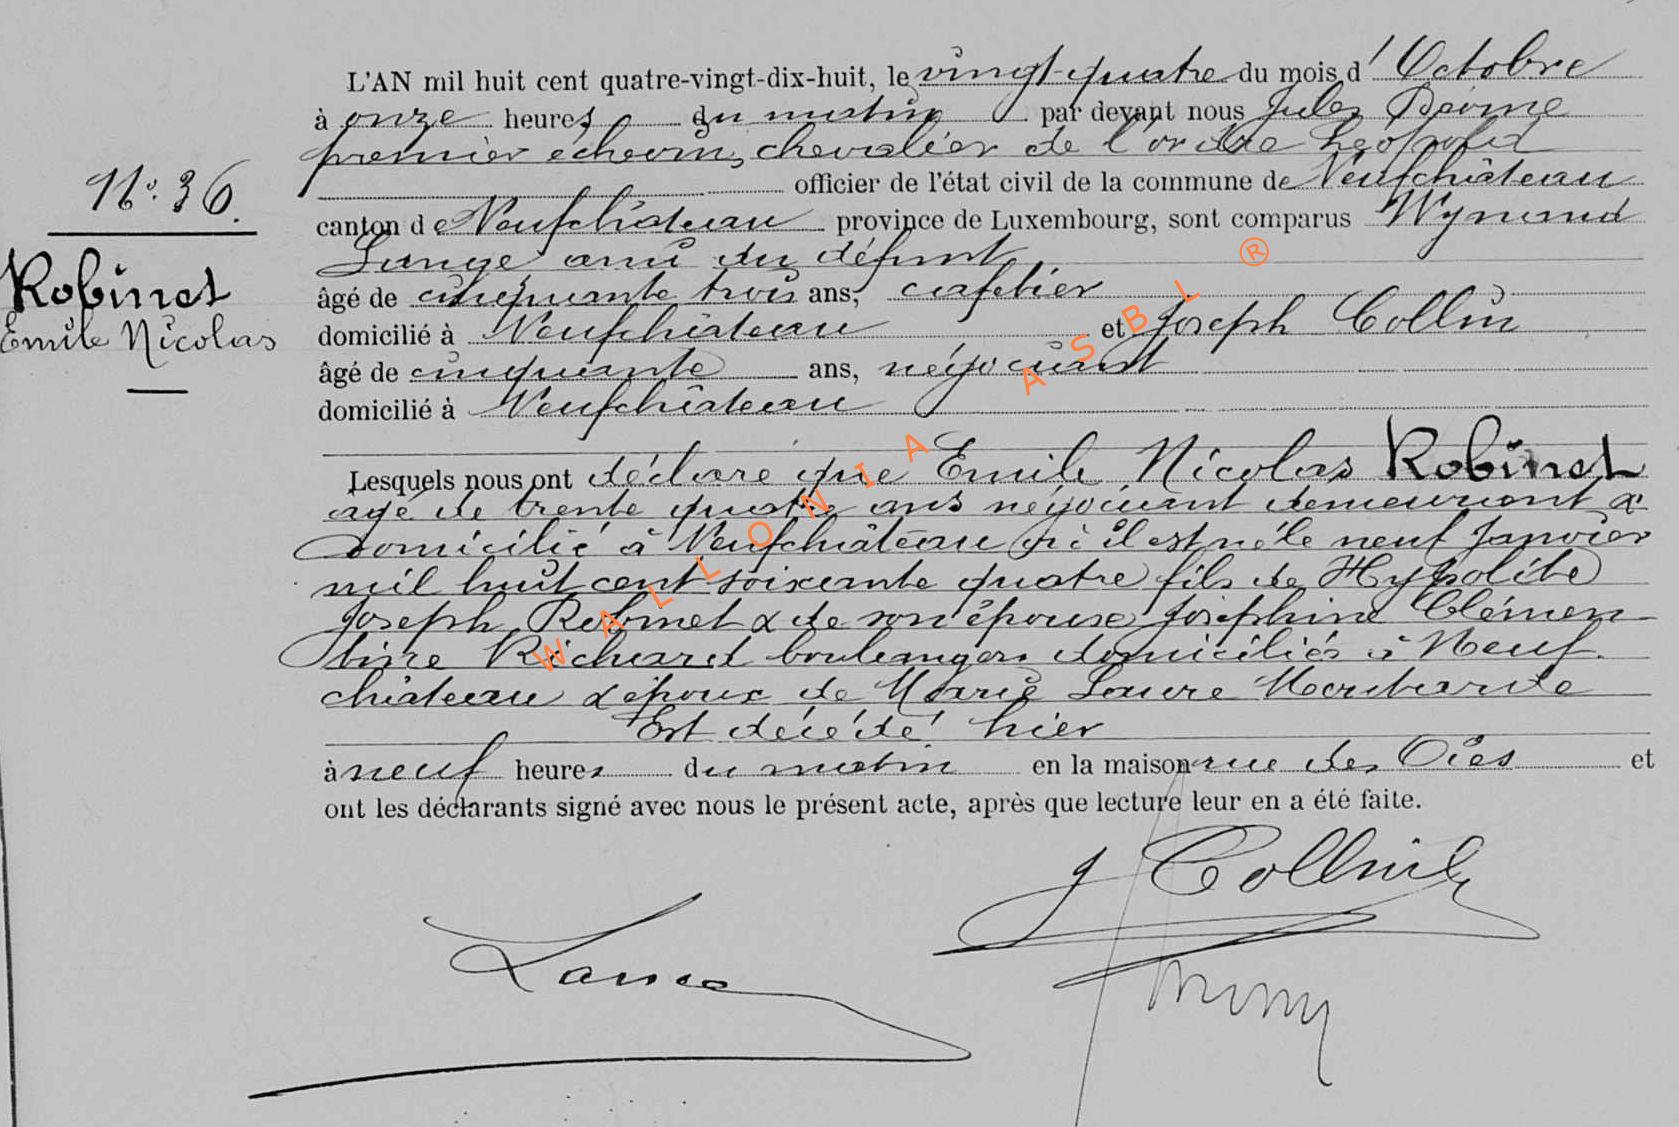 L'AN mil huit cent quatre-vingt-dix-huit, le vingt-quatre du mois d'Octobre
à onze heures du matin par devant nous Jules
premier échevin, chevalier de l'ordre Léopold
N° 36.
officier de l'état civil de la commune de Neufchâteau
canton de Neufchâteau province de Luxembourg, sont comparus Wynand
Lange ami du défunt
Robinet
Emile Nicolas
âgé de cinquante trois ans, cafetier
domicilié à Neufchâteau et Joseph Collin
âgé de cinquante ans, négociant
domicilié à Neufchâteau
Lesquels nous ont déclaré que Emile Nicolas Robinet
agé de trente quatre ans négociant demeurant &
domicilié à Neufchâteau où il est né le neuf Janvier
mil huit cent soixante quatre fils de Hypolite
Joseph Robinet & de son épouse Joséphine Clémen
tine Richard boulangers domiciliés à Neuf
château & époux de Marie Laure
Est décédé hier
à neuf heures du matin en la maison rue des Oies et
ont les déclarants signé avec nous le présent acte, après que lecture leur en a été faite.
J Collin
Lange
WALLONIA ASBL ®